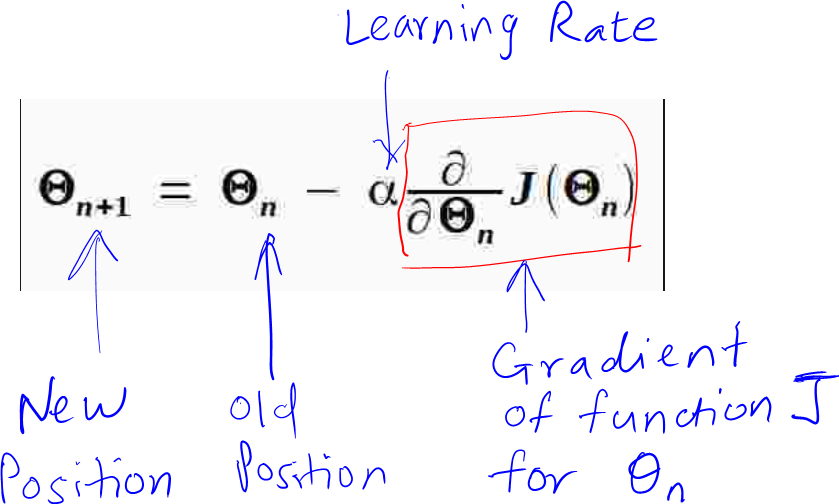 Learning Rate
Θn+1 = Θn − α ∂/∂Θn J(Θn)
New
Position
Old
Position
Gradient
of function J
for θn